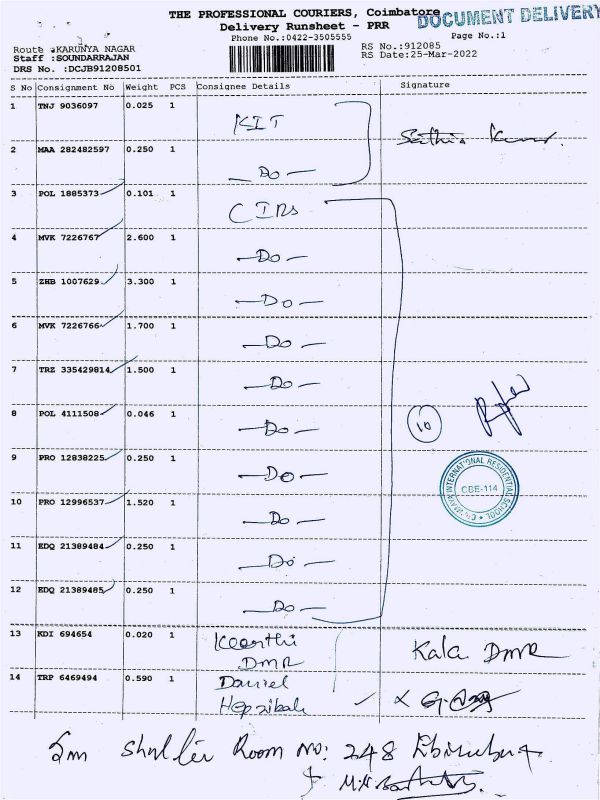 THE PROFESSIONAL COURIERS, Coimbatore
DOCUMENT DELIVERY
Delivery Runsheet - PRR
Phone No.:0422-3505555
Page No.:1
Route :KARUNYA NAGAR
Staff :SOUNDARRAJAN
DRS No. :DCJB91208501
RS No.:912085
RS Date:25-Mar-2022
S No Consignment No Weight PCS Consignee Details Signature
1 TNJ 9036097 0.025 1 KIT
2 MAA 282482597 0.250 1 —Do—
3 POL 1885373 0.101 1 CIRs
4 MVK 7226767 2.600 1 —Do—
5 ZHB 1007629 3.300 1 —Do—
6 MVK 7226766 1.700 1 —Do—
7 TRZ 335429814 1.500 1 —Do—
8 POL 4111508 0.046 1 —Do— 10
9 PRO 12838225 0.250 1 —Do—
INTERNATIONAL RESIDENTIAL SCHOOL
CBE-114
10 PRO 12996537 1.520 1 —Do—
11 EDQ 21389484 0.250 1 —Do—
12 EDQ 21389485 0.250 1 —Do—
13 KDI 694654 0.020 1 Keerthi DMR Kala DMR
14 TRP 6469494 0.590 1 Daniel
Hepzibah
Room no: 248